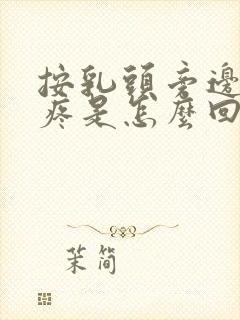 按乳頭旁邊
疼是怎麼回
茉简